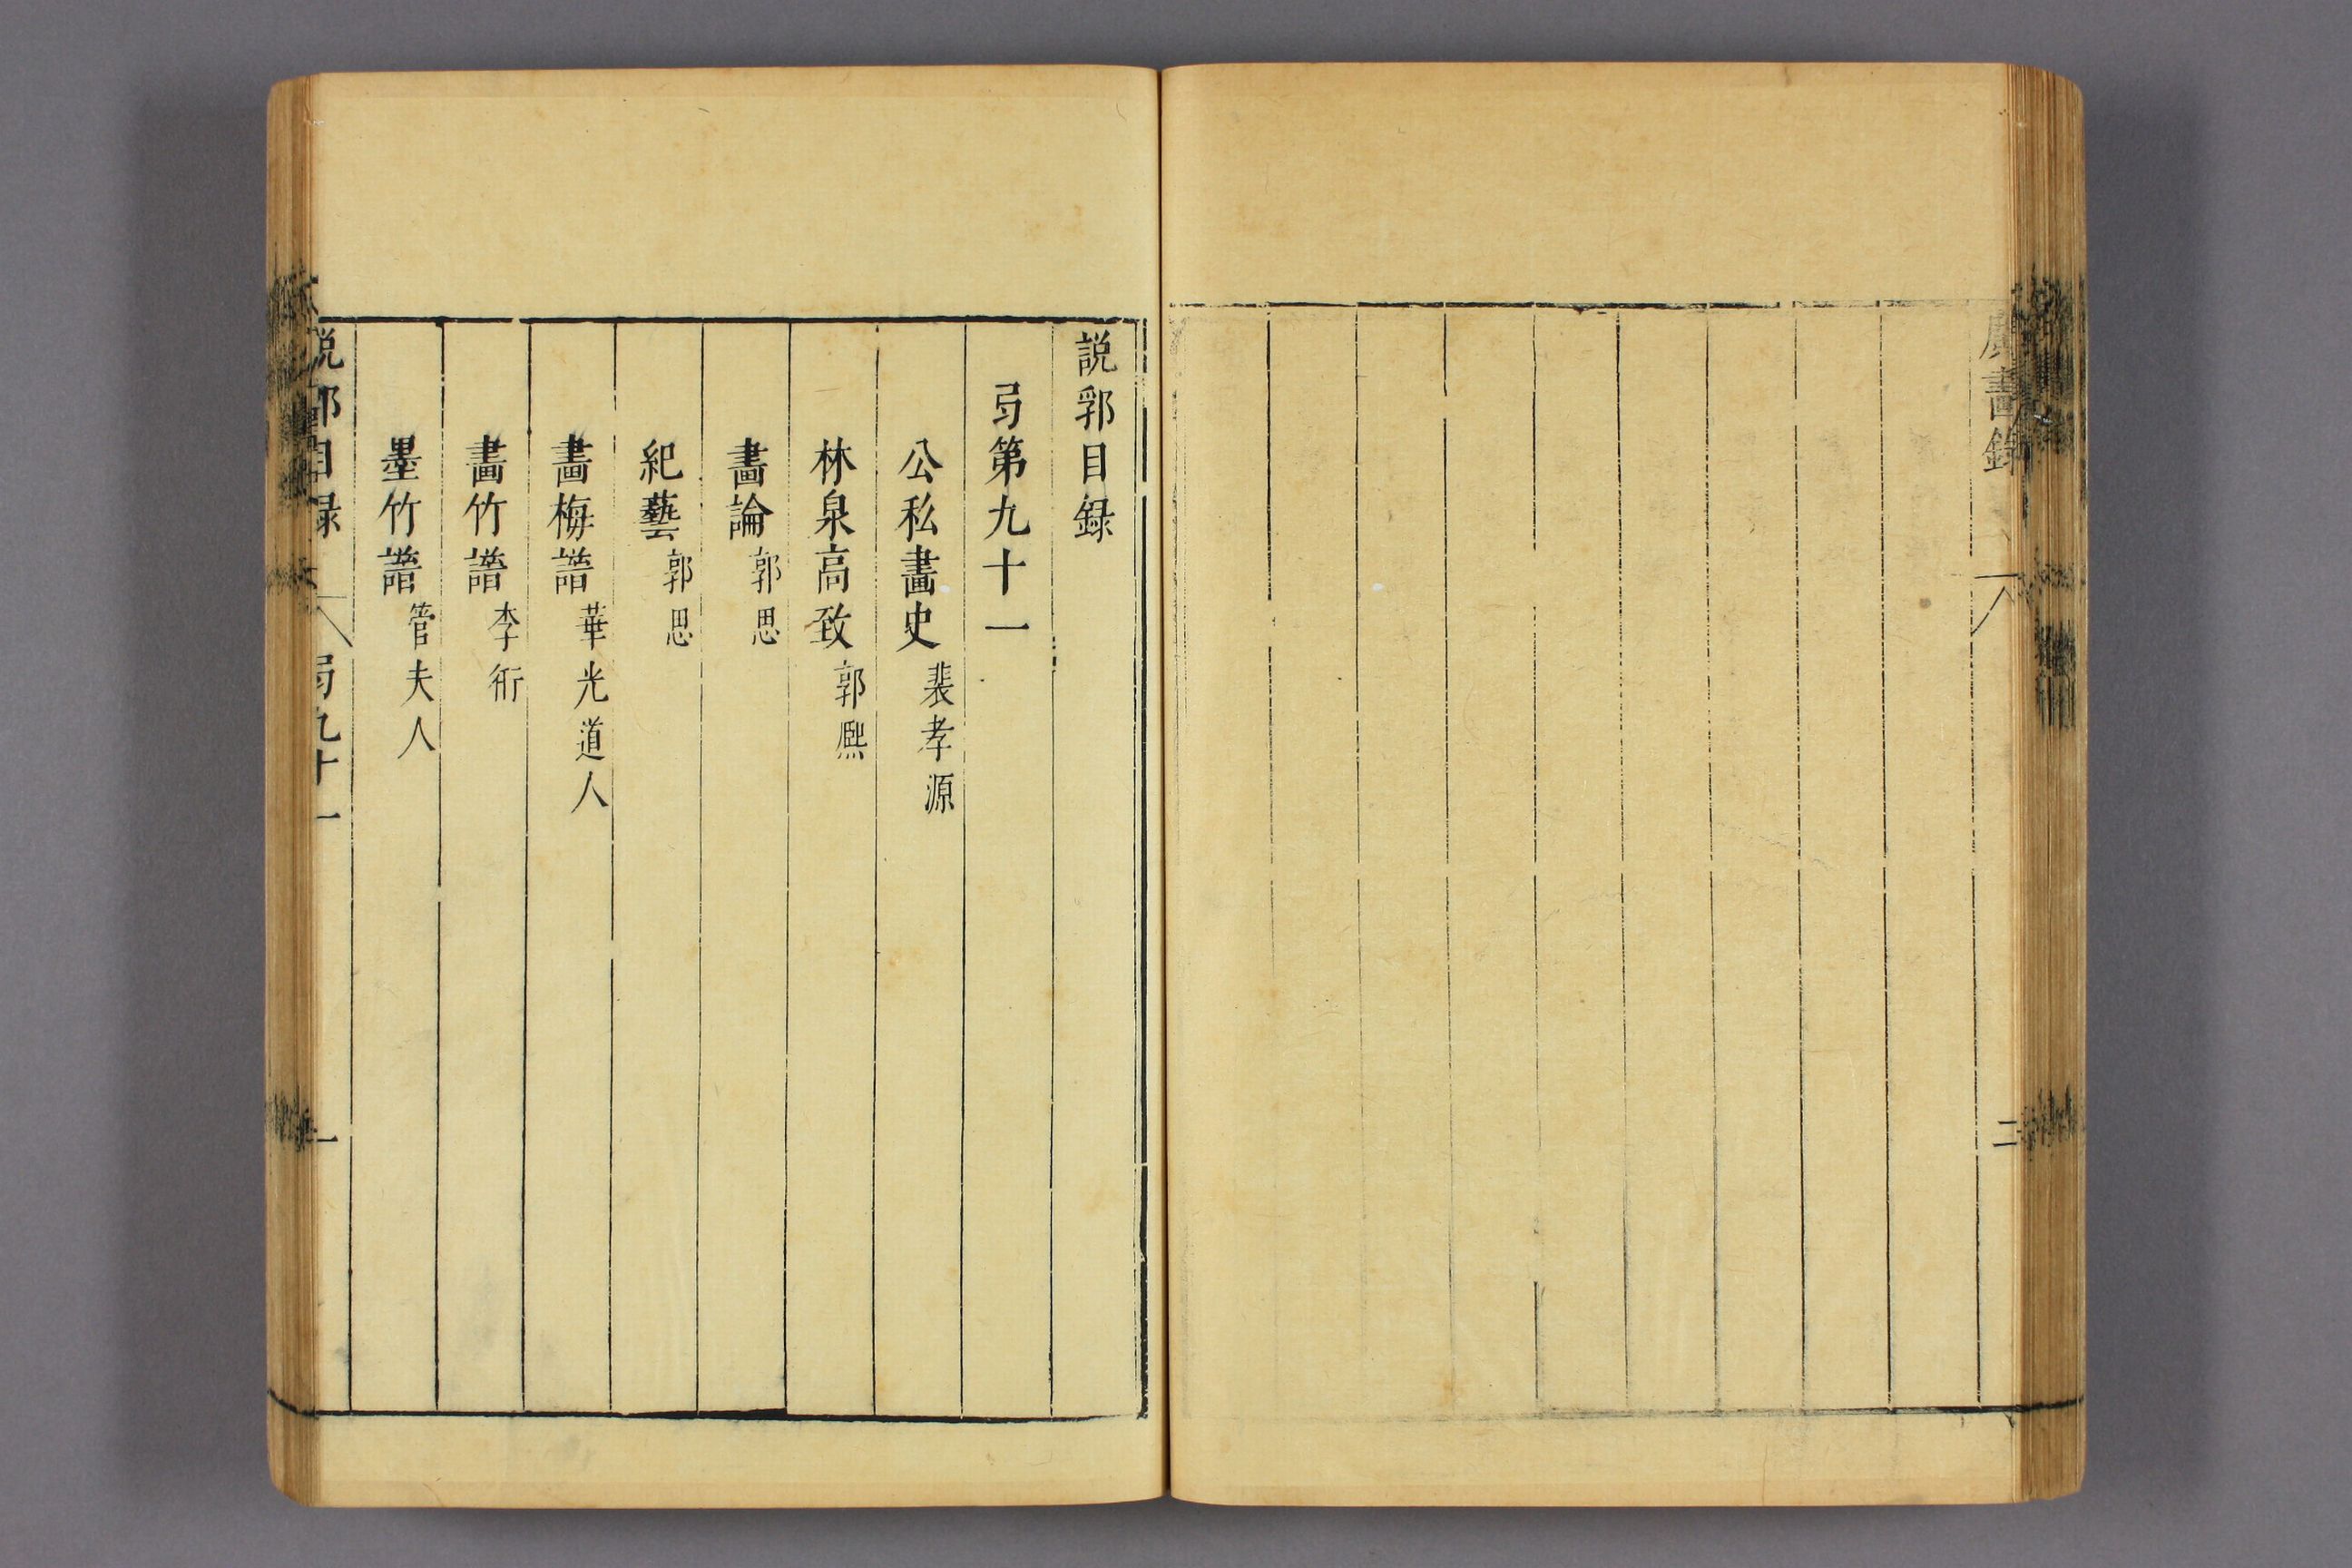 畫錄
二
說郛目録
弓第九十一
公私畫史裴孝源
林泉高致郭熈
畫論郭思
紀藝郭思
畫梅譜華光道人
畫竹譜李衎
墨竹譜管夫人
說郛目録 弓九十一 一